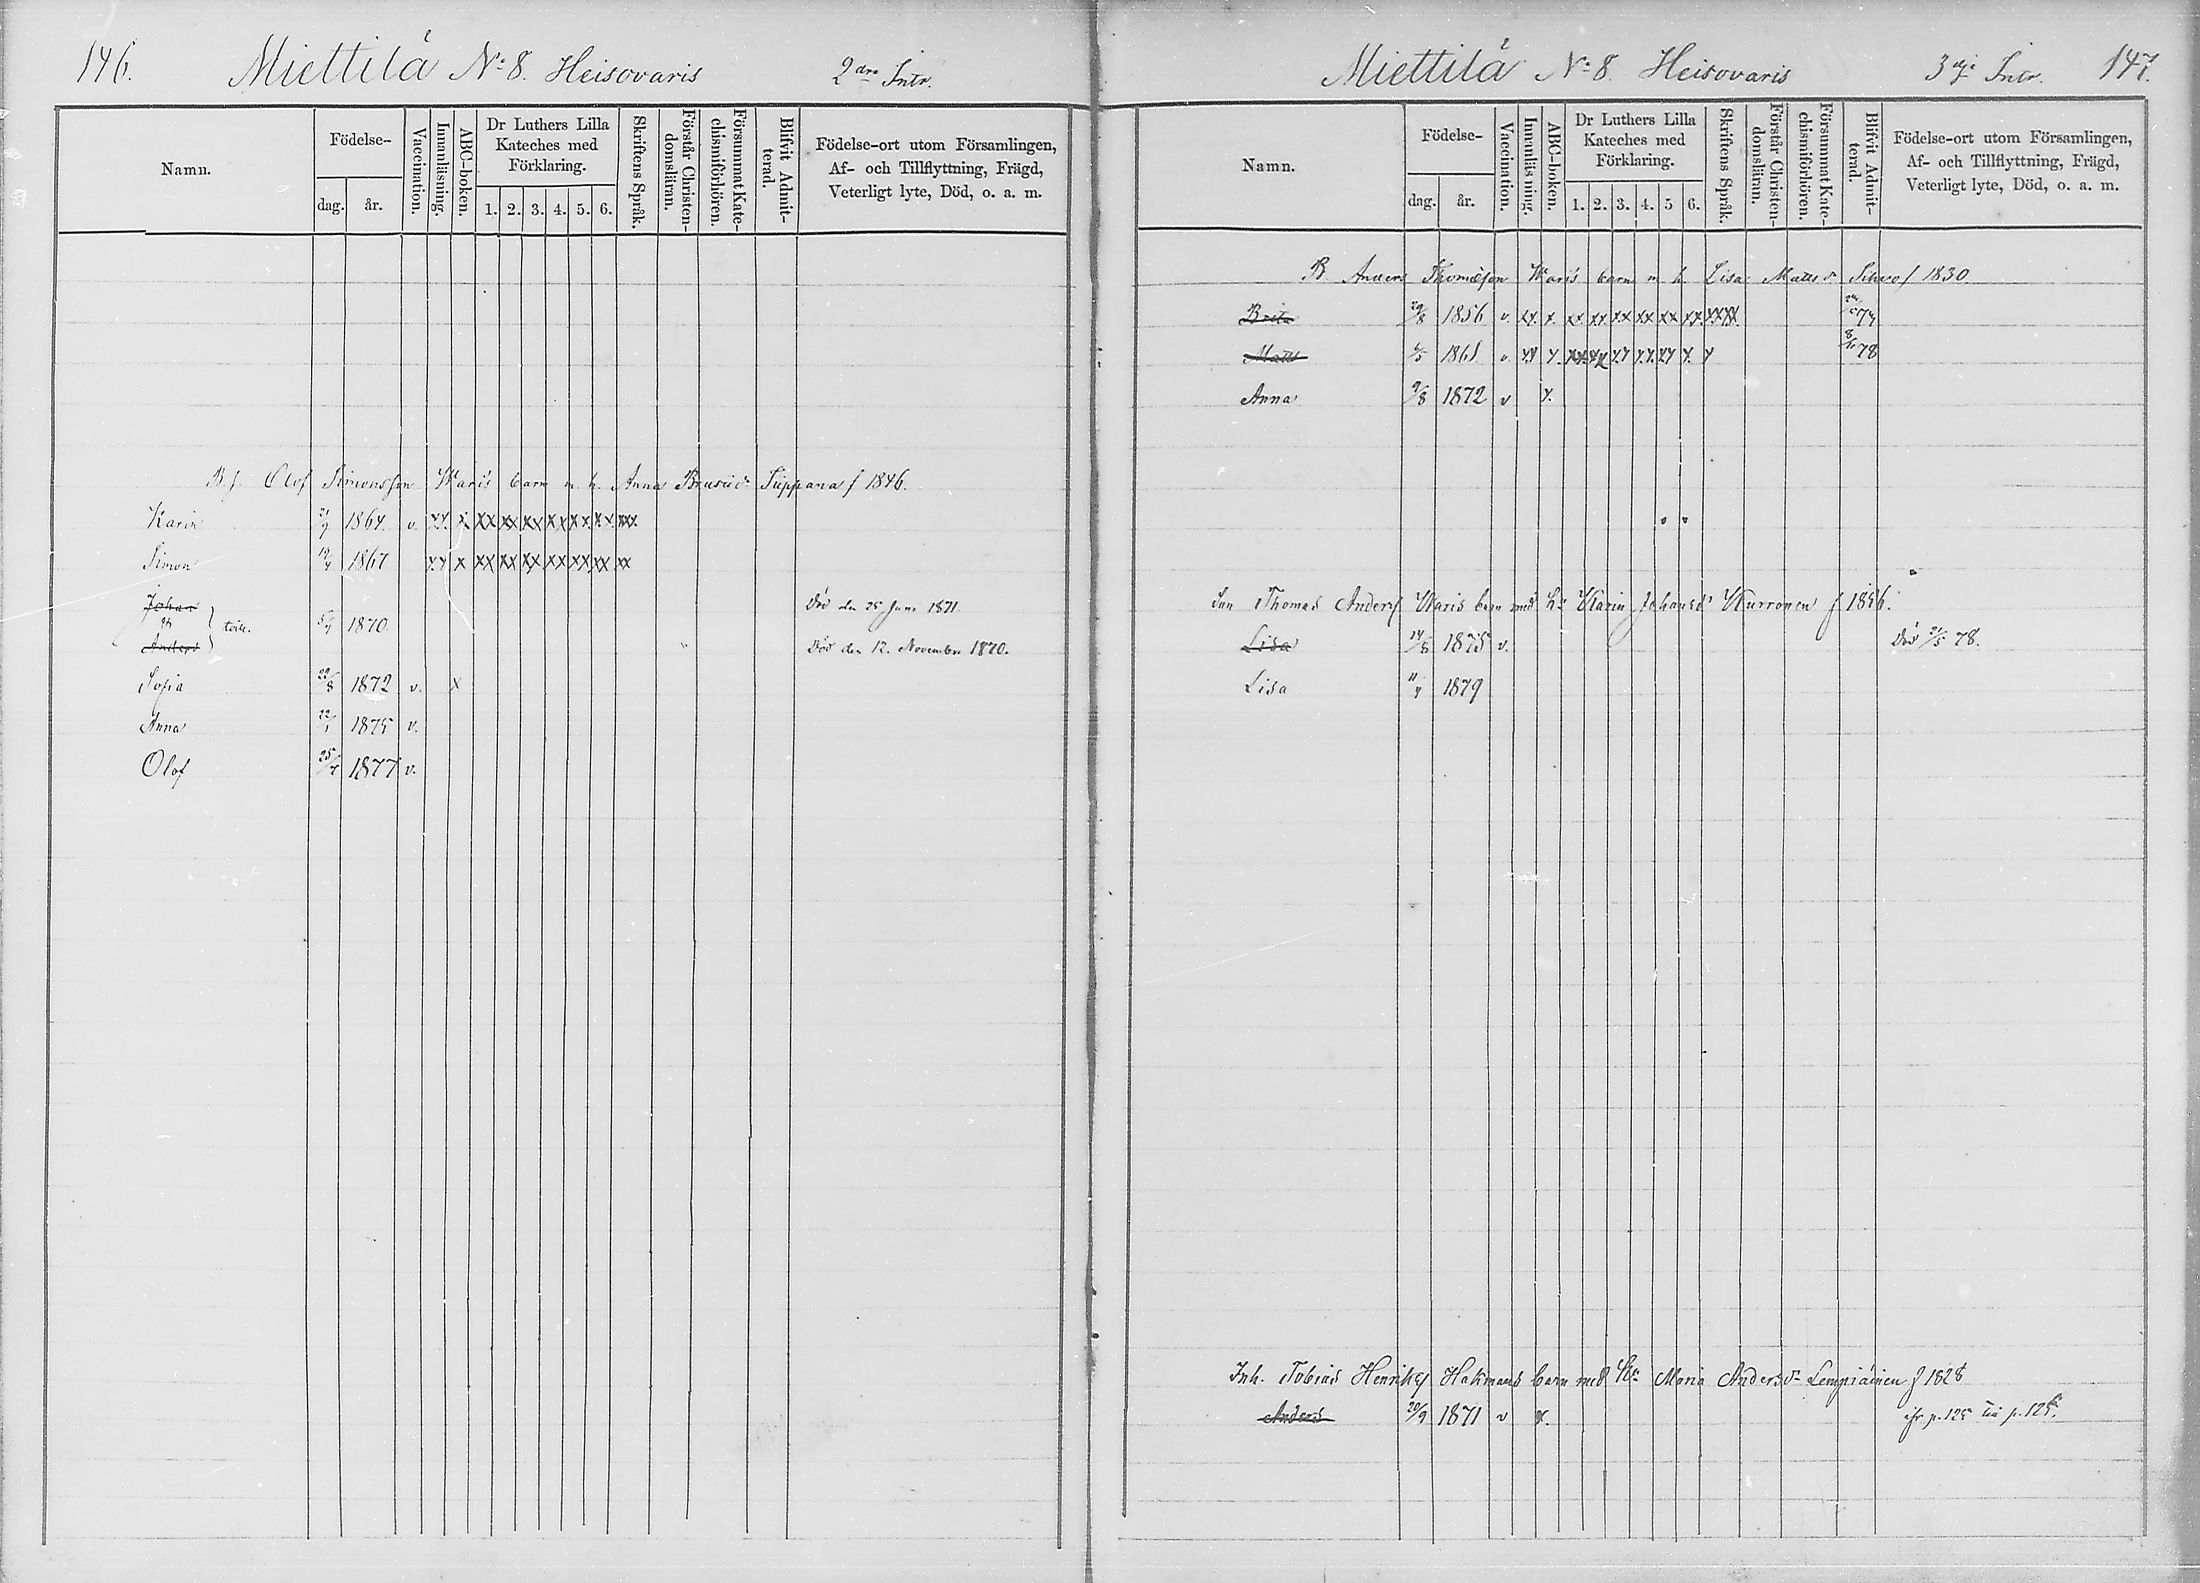 146. Miettilä No 8. Heisovaris 2dra Intr.
Namn. Födelse- dag. år. Vaccination. Innanläsning. ABC-boken. Dr Luthers Lilla Kateches med Förklaring. 1. 2. 3. 4. 5. 6. Skriftens Språk. Förstår Christen-domsläran. Försummat Kate-chismiförhören. Blifvit Admit-terad. Födelse-ort utom Församlingen, Af- och Tillflyttning, Frägd, Veterligt lyte, Död, o. a. m.
Olof Simonsson Waris barn m. h. Anna Suppana f 1846.
Karin 1864. v. xx x xx xx xx xx xx xx xxx
Simon 1867 xx x xx xx xx xx xx xx xx
Johan Död den 25 Juni 1871.
och } tvill. 1870.
Anders Död den 12. November 1870.
Sofia 22/8 1872 v. x
Anna 1875 v.
Olof 25/7 1877 v.
Miettilä No 8 Heisovaris 3dje Intr. 147.
Namn. Födelse- dag. år. Vaccination. Innanläsning. ABC-boken. Dr Luthers Lilla Kateches med Förklaring. 1. 2. 3. 4. 5 6. Skriftens Språk. Förstår Christen-domsläran. Försummat Kate-chismiförhören. Blifvit Admit-terad. Födelse-ort utom Församlingen, Af- och Tillflyttning, Frägd, Veterligt lyte, Död, o. a. m.
B Anders Thomæson Waris barn m h. Lisa Matsdr f 1830.
Brita 29/8 1856 v. xx x. xx xx xx xx xx xx xxxx 74
Matts 1861 v. xx x. xx xx xx xx xx x. x 78
Anna 9/8 1872 v x.
Thomas Andersf Waris barn med h. Karin Johansdr Kurronen f 1856.
Lisa 14/8 1875 v. Död 21/5 78.
Lisa 11/4 1879
Inh. Tobias Henriksf Hakmans barn med h. Maria Andersdr Lempiäinen f 1828
Anders 20/9 1871 v x. ifr p. 125 till p. 125